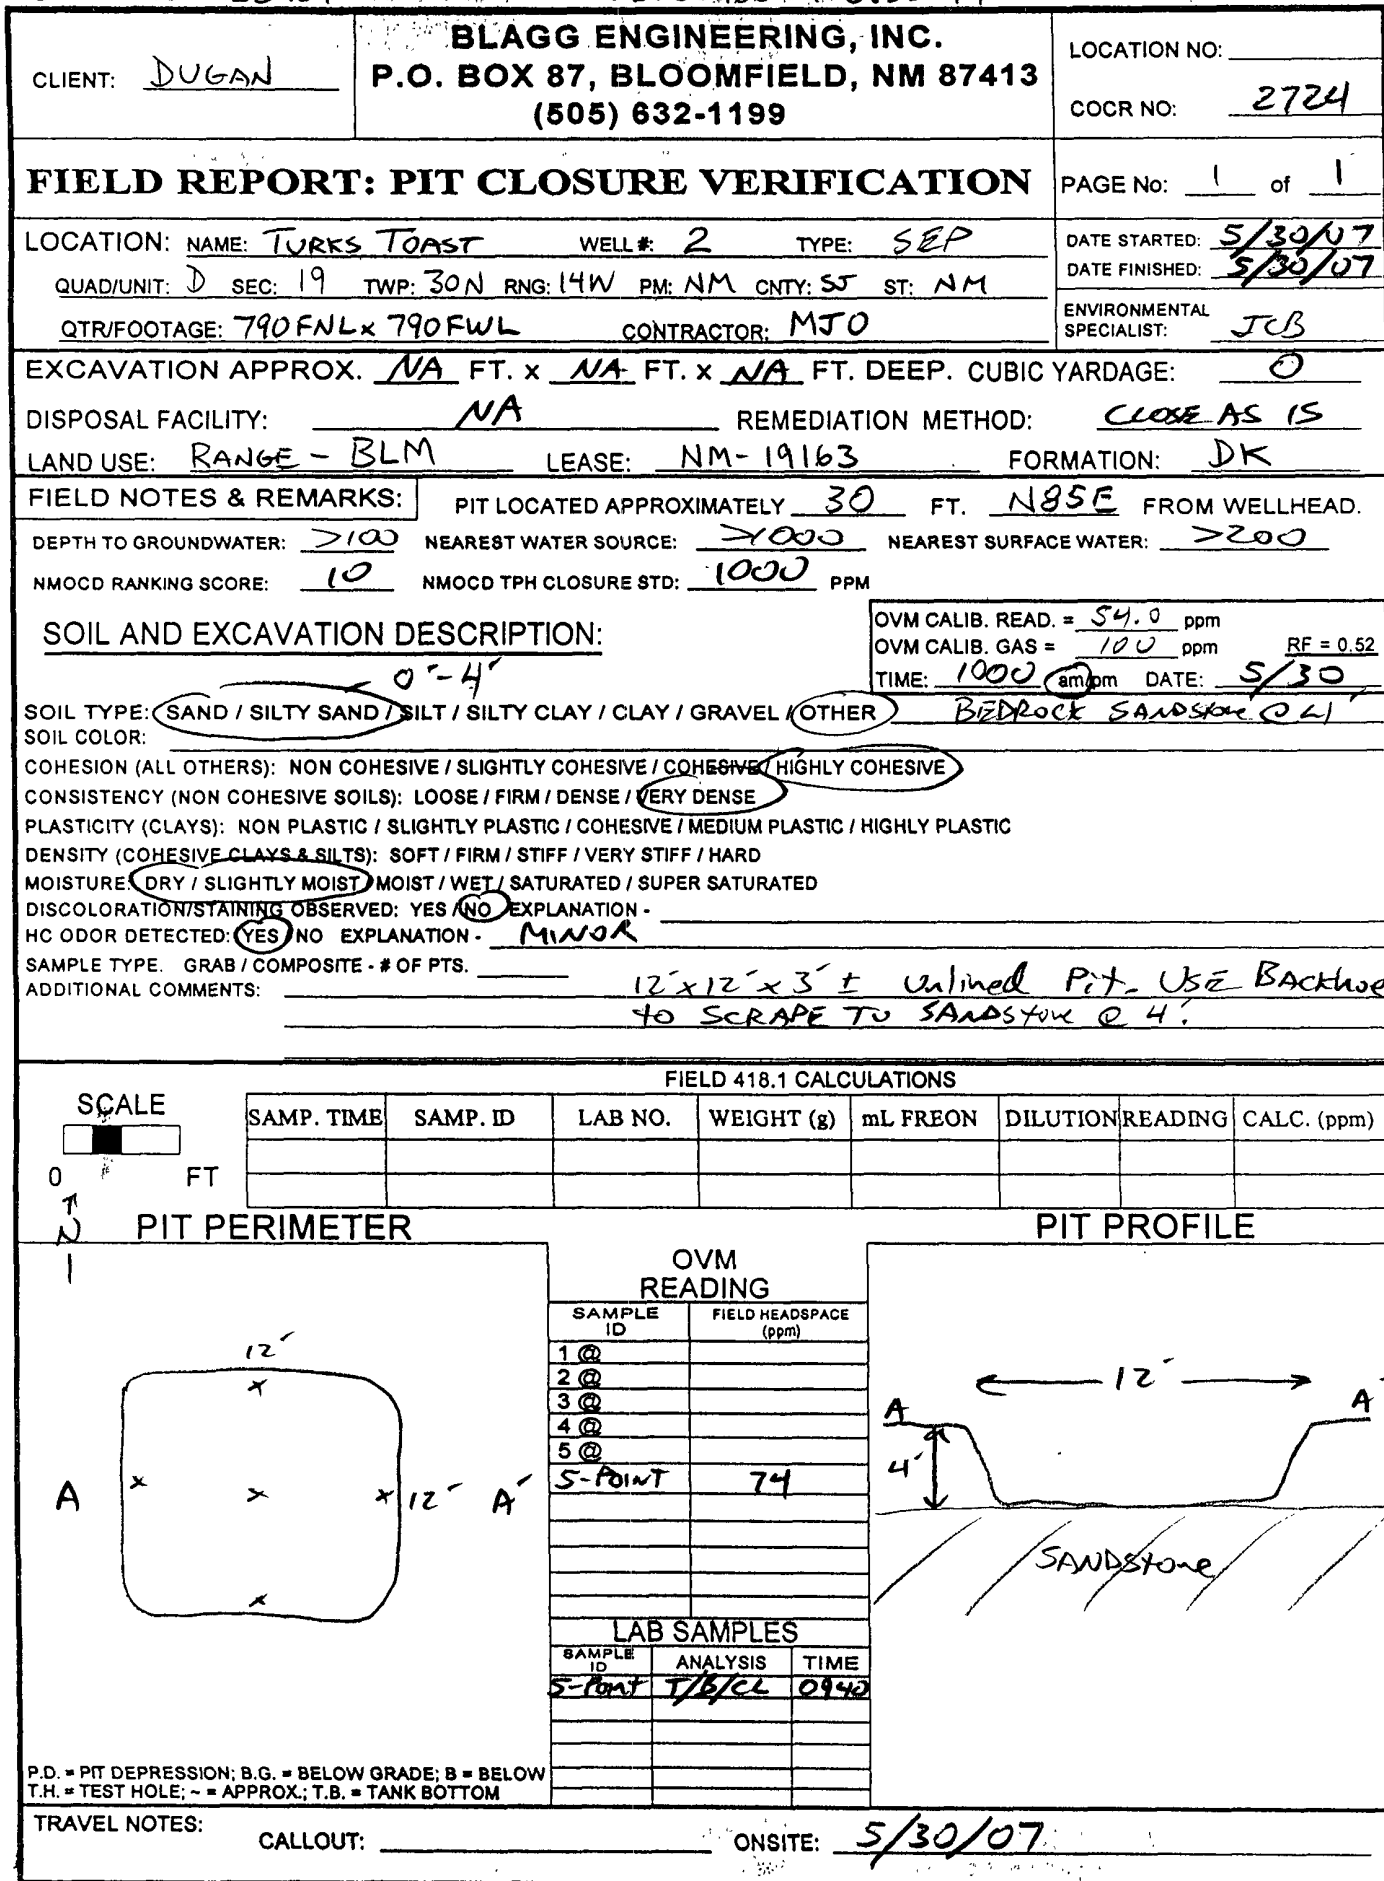 BLAGG ENGINEERING, INC.
P.O. BOX 87, BLOOMFIELD, NM 87413
(505) 632-1199
CLIENT: DUGAN
LOCATION NO:
COCR NO: 2724
FIELD REPORT: PIT CLOSURE VERIFICATION
PAGE No: 1 of 1
LOCATION: NAME: TURKS TOAST WELL #: 2 TYPE: SEP
QUAD/UNIT: D SEC: 19 TWP: 30N RNG: 14W PM: NM CNTY: SJ ST: NM
QTR/FOOTAGE: 790FNL x 790FWL CONTRACTOR: MJO
DATE STARTED: 5/30/07
DATE FINISHED: 5/30/07
ENVIRONMENTAL
SPECIALIST: JCB
EXCAVATION APPROX. NA FT. x NA FT. x NA FT. DEEP. CUBIC YARDAGE: 0
DISPOSAL FACILITY: NA REMEDIATION METHOD: CLOSE AS IS
LAND USE: RANGE - BLM LEASE: NM-19163 FORMATION: DK
FIELD NOTES & REMARKS: PIT LOCATED APPROXIMATELY 30 FT. N85E FROM WELLHEAD.
DEPTH TO GROUNDWATER: >100 NEAREST WATER SOURCE: >1000 NEAREST SURFACE WATER: >200
NMOCD RANKING SCORE: 10 NMOCD TPH CLOSURE STD: 1000 PPM
SOIL AND EXCAVATION DESCRIPTION:
OVM CALIB. READ. = 54.0 ppm
OVM CALIB. GAS = 100 ppm RF = 0.52
TIME: 1000 am/pm DATE: 5/30
0'-4'
SOIL TYPE: SAND / SILTY SAND / SILT / SILTY CLAY / CLAY / GRAVEL / OTHER BEDROCK SANDSTONE @ 4'
SOIL COLOR:
COHESION (ALL OTHERS): NON COHESIVE / SLIGHTLY COHESIVE / COHESIVE / HIGHLY COHESIVE
CONSISTENCY (NON COHESIVE SOILS): LOOSE / FIRM / DENSE / VERY DENSE
PLASTICITY (CLAYS): NON PLASTIC / SLIGHTLY PLASTIC / COHESIVE / MEDIUM PLASTIC / HIGHLY PLASTIC
DENSITY (COHESIVE CLAYS & SILTS): SOFT / FIRM / STIFF / VERY STIFF / HARD
MOISTURE: DRY / SLIGHTLY MOIST / MOIST / WET / SATURATED / SUPER SATURATED
DISCOLORATION/STAINING OBSERVED: YES / NO EXPLANATION -
HC ODOR DETECTED: YES / NO EXPLANATION - MINOR
SAMPLE TYPE. GRAB / COMPOSITE - # OF PTS.
ADDITIONAL COMMENTS: 12'x12'x3' ± Unlined Pit. USE BACKhoe
to SCRAPE TO SANDStone @ 4'.
FIELD 418.1 CALCULATIONS
SCALE
0 FT
SAMP. TIME SAMP. ID LAB NO. WEIGHT (g) mL FREON DILUTION READING CALC. (ppm)
N
PIT PERIMETER
PIT PROFILE
12'
A
12'
A'
OVM
READING
SAMPLE ID FIELD HEADSPACE (ppm)
1 @
2 @
3 @
4 @
5 @
5-POINT 74
LAB SAMPLES
SAMPLE ID ANALYSIS TIME
5-Point T/B/CL 0940
12'
A
A'
4'
SANDStone
P.D. = PIT DEPRESSION; B.G. = BELOW GRADE; B = BELOW
T.H. = TEST HOLE; ~ = APPROX.; T.B. = TANK BOTTOM
TRAVEL NOTES:
CALLOUT: ONSITE: 5/30/07